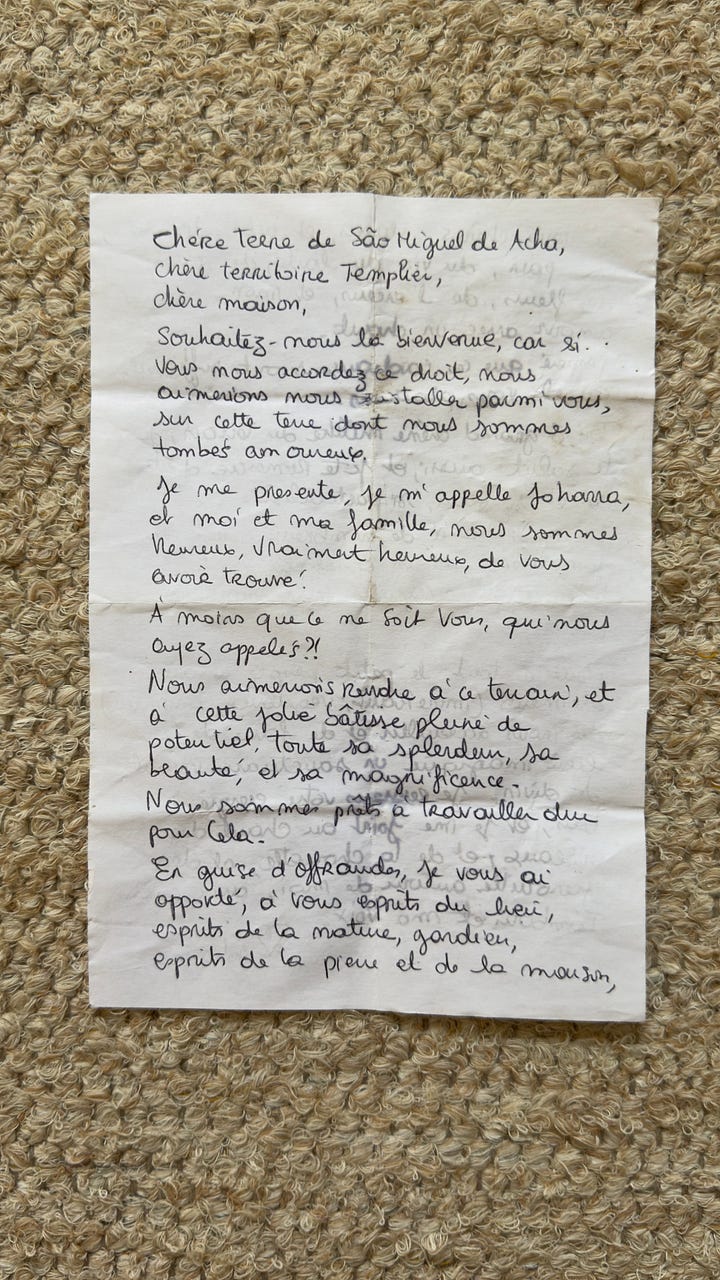 Chère Terre de São Miguel de Acha,
chère territoire Templier,
chère maison,
Souhaitez-nous la bienvenue, car si
vous nous accordez ce droit, nous
aimerions nous installer parmi vous,
sur cette terre dont nous sommes
tombés amoureux.
Je me présente, je m'appelle Johanna,
et moi et ma famille, nous sommes
heureux, vraiment heureux, de vous
avoir trouvé!
À moins que ce ne soit vous, qui nous
ayez appelés?!
Nous aimerions rendre à ce terrain, et
à cette jolie bâtisse pleine de
potentiel, toute sa splendeur, sa
beauté, et sa magnificence.
Nous sommes prêts à travailler dur
pour cela.
En guise d'offrandes, je vous ai
apporté, à vous esprits du lieu,
esprits de la nature, gardien,
esprits de la pierre et de la maison,